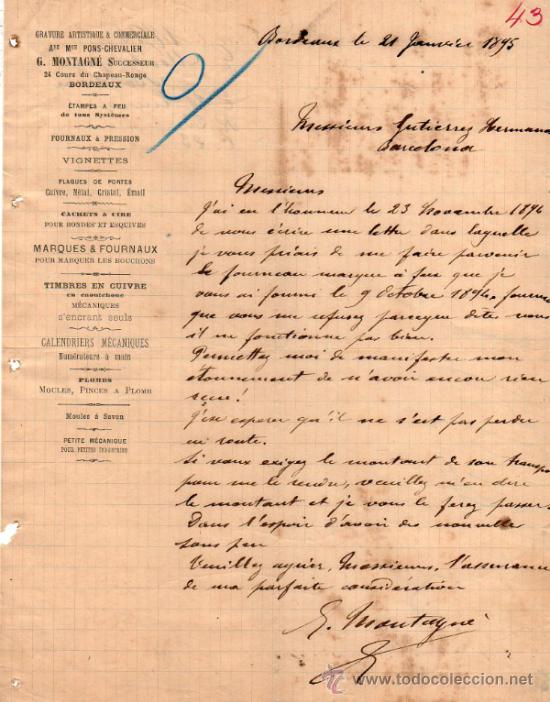 43
GRAVURE ARTISTIQUE & COMMERCIALE
Ane Mon PONS-CHEVALIER
G. MONTAGNÉ SUCCESSEUR
24 Cours du Chapeau-Rouge
BORDEAUX
ÉTAMPES A FEU
de tous Systèmes
FOURNAUX A PRESSION
VIGNETTES
PLAQUES DE PORTES
Cuivre, Métal, Cristal, Émail
CACHETS A CIRE
POUR BONDES ET ESQUIVES
MARQUES & FOURNAUX
POUR MARQUER LES BOUCHONS
TIMBRES EN CUIVRE
en caoutchouc
MÉCANIQUES
s'encrant seuls
CALENDRIERS MÉCANIQUES
Numéroteurs à main
PLOMBS
MOULES, PINCES A PLOMB
Moules à Savon
PETITE MÉCANIQUE
POUR PETITES INDUSTRIES
Bordeaux le 21 Janvier 1895
Messieurs Gutierrez Hermano
Barcelona
Messieurs
J'ai eu l'honneur le 23 Novembre 1894
de vous écrire une lettre dans laquelle
je vous priais de me faire parvenir
le fourneau marque à feu que je
vous ai fourni le 9 Octobre 1894,
que vous me refusez parceque dites vous
il ne fonctionne pas bien.
Permettez moi de manifester mon
étonnement de n'avoir encore rien
reçu!
J'ose esperer qu'il ne s'est pas perdu
en route.
Si vous exigez le montant de son transpo
pour me le rendre, veuillez m'en dire
le montant et je vous le ferez passer
Dans l'espoir d'avoir des nouvelles
sous peu
Veuillez agréer, Messieurs, l'assurance
de ma parfaite considération
G. Montagné
todocoleccion.net